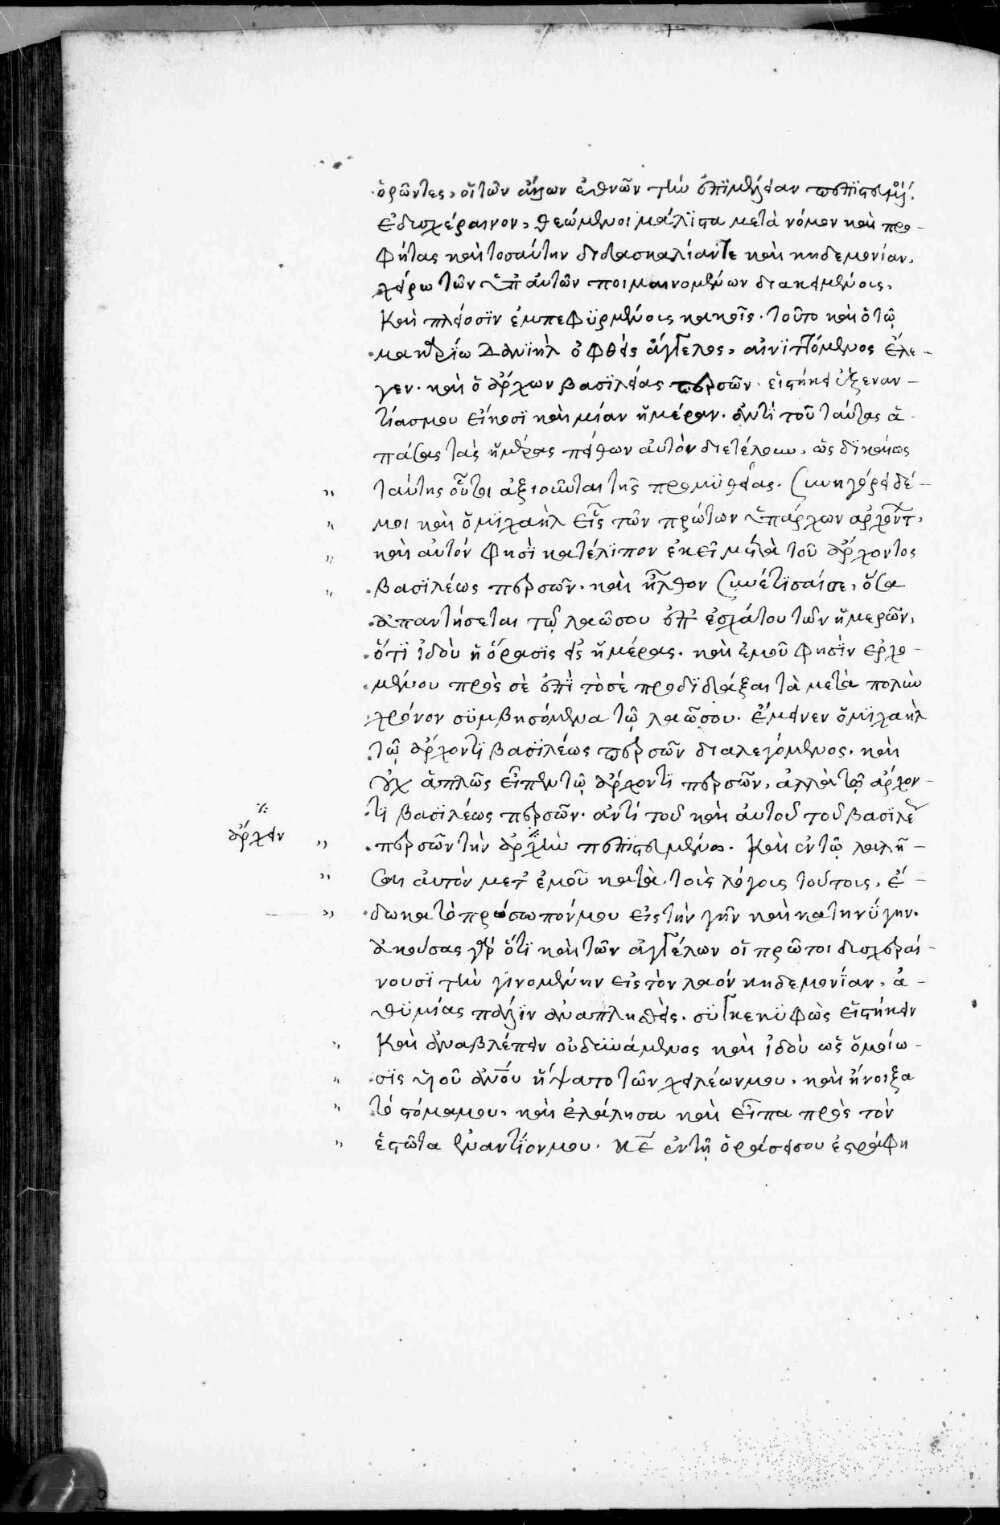 ὁρῶντες, οἱ τῶν ἄλλων ἐθνῶν τὴν ἐπιμέλειαν πεπιστευμένοι
ἐδυσχέραινον, θεώμενοι μάλιστα μετὰ νόμον καὶ προ-
φήτας καὶ τοσαύτην διδασκαλίαν τε καὶ κηδεμονίαν,
χείρω τῶν ὑπ' αὐτῶν ποιμαινομένων διακειμένους,
καὶ πλείοσιν ἐμπεφυρμένους κακοῖς. τοῦτο καὶ ὁ τῷ
μακαρίῳ Δανιὴλ ὀφθεὶς ἄγγελος, αἰνιττόμενος ἔλε-
γεν. καὶ ὁ ἄρχων βασιλείας περσῶν. εἱστήκει ἐξεναν-
τίας μου εἴκοσι καὶ μίαν ἡμέραν. ἀντὶ τοῦ ταύτας ἁ-
πάσας τὰς ἡμέρας πείθων αὐτὸν διετέλουν, ὡς δικαίως
ταύτης οὗτοι ἀξιοῦνται τῆς προμηθείας. συνηγόρει δέ
μοι καὶ ὁ μιχαὴλ εἷς τῶν πρώτων ὑπάρχων ἀρχόντ,
καὶ αὐτόν φησὶ κατέλιπον ἐκεῖ μετὰ τοῦ ἄρχοντος
βασιλέως περσῶν. καὶ ἦλθον συνέτισαί σε, ὅσα
ἀπαντήσεται τῷ λαῷ σου ἐπ' ἐσχάτου τῶν ἡμερῶν,
ὅτι ἰδοὺ ἡ ὅρασις εἰς ἡμέρας. καὶ ἐμοῦ φησὶν ἐρχο-
μένου πρὸς σὲ ἐπὶ τὸ σὲ προδιδάξαι τὰ μετὰ πολὺν
χρόνον συμβησόμενα τῷ λαῷ σου. ἔμεινεν ὁ μιχαὴλ
τῷ ἄρχοντι βασιλέως περσῶν διαλεγόμενος. καὶ
οὐχ ἁπλῶς εἶπεν τῷ ἄρχοντι περσῶν, ἀλλὰ τῷ ἄρχον-
τι βασιλέως περσῶν. ἀντὶ τοῦ καὶ αὐτοῦ τοῦ βασιλέ
ἄρχειν
περσῶν τὴν ἀρχὴν πεπιστευμένος. καὶ ἐν τῷ λαλῆ-
σαι αὐτὸν μετ' ἐμοῦ κατὰ τοὺς λόγους τούτους, ἔ-
δωκα τὸ πρόσωπόν μου εἰς τὴν γῆν καὶ κατηνύγην.
ἀκούσας γὰρ ὅτι καὶ τῶν ἀγγέλων οἱ πρῶτοι δυσχεραί-
νουσι τὴν γινομένην εἰς τὸν λαόν κηδεμονίαν, ἀ-
θυμίας πάλιν ἀναπλησθεὶς. συγκεκυφὼς εἱστήκειν
καὶ ἀναβλέπειν οὐ δυνάμενος καὶ ἰδοὺ ὡς ὁμοίω-
σις υἱοῦ ἀνου ἥψατο τῶν χειλέων μου. καὶ ἤνοιξα
τὸ στόμα μου, καὶ ἐλάλησα καὶ εἶπα πρὸς τὸν
ἑστῶτα ἐναντίον μου. κε ἐν τῇ ὁράσει σου ἐστράφη